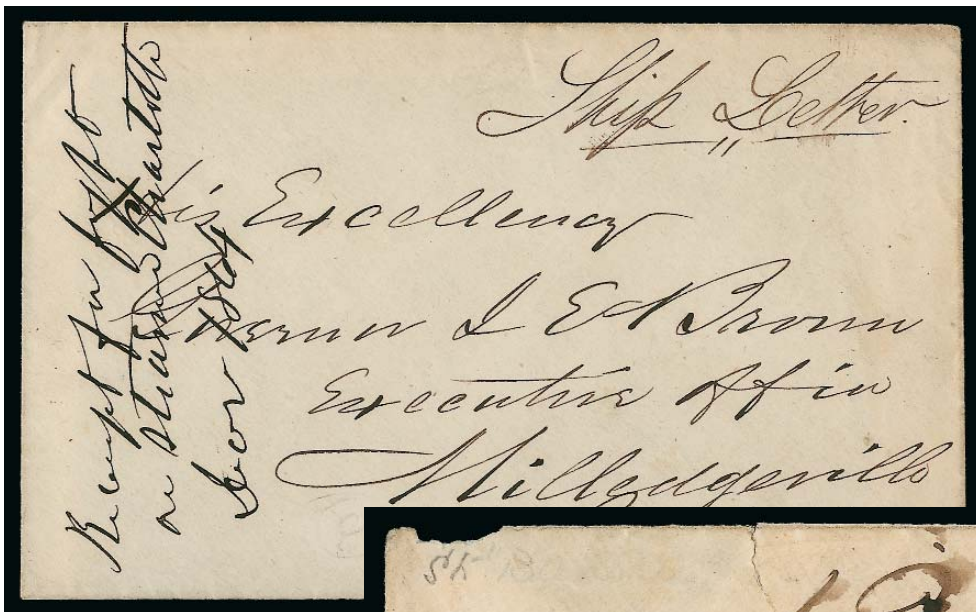 Ship Letter.
His Excellency
Governor J E Brown
Executive Office
Milledgeville
Receipt for
on Steamer
1864